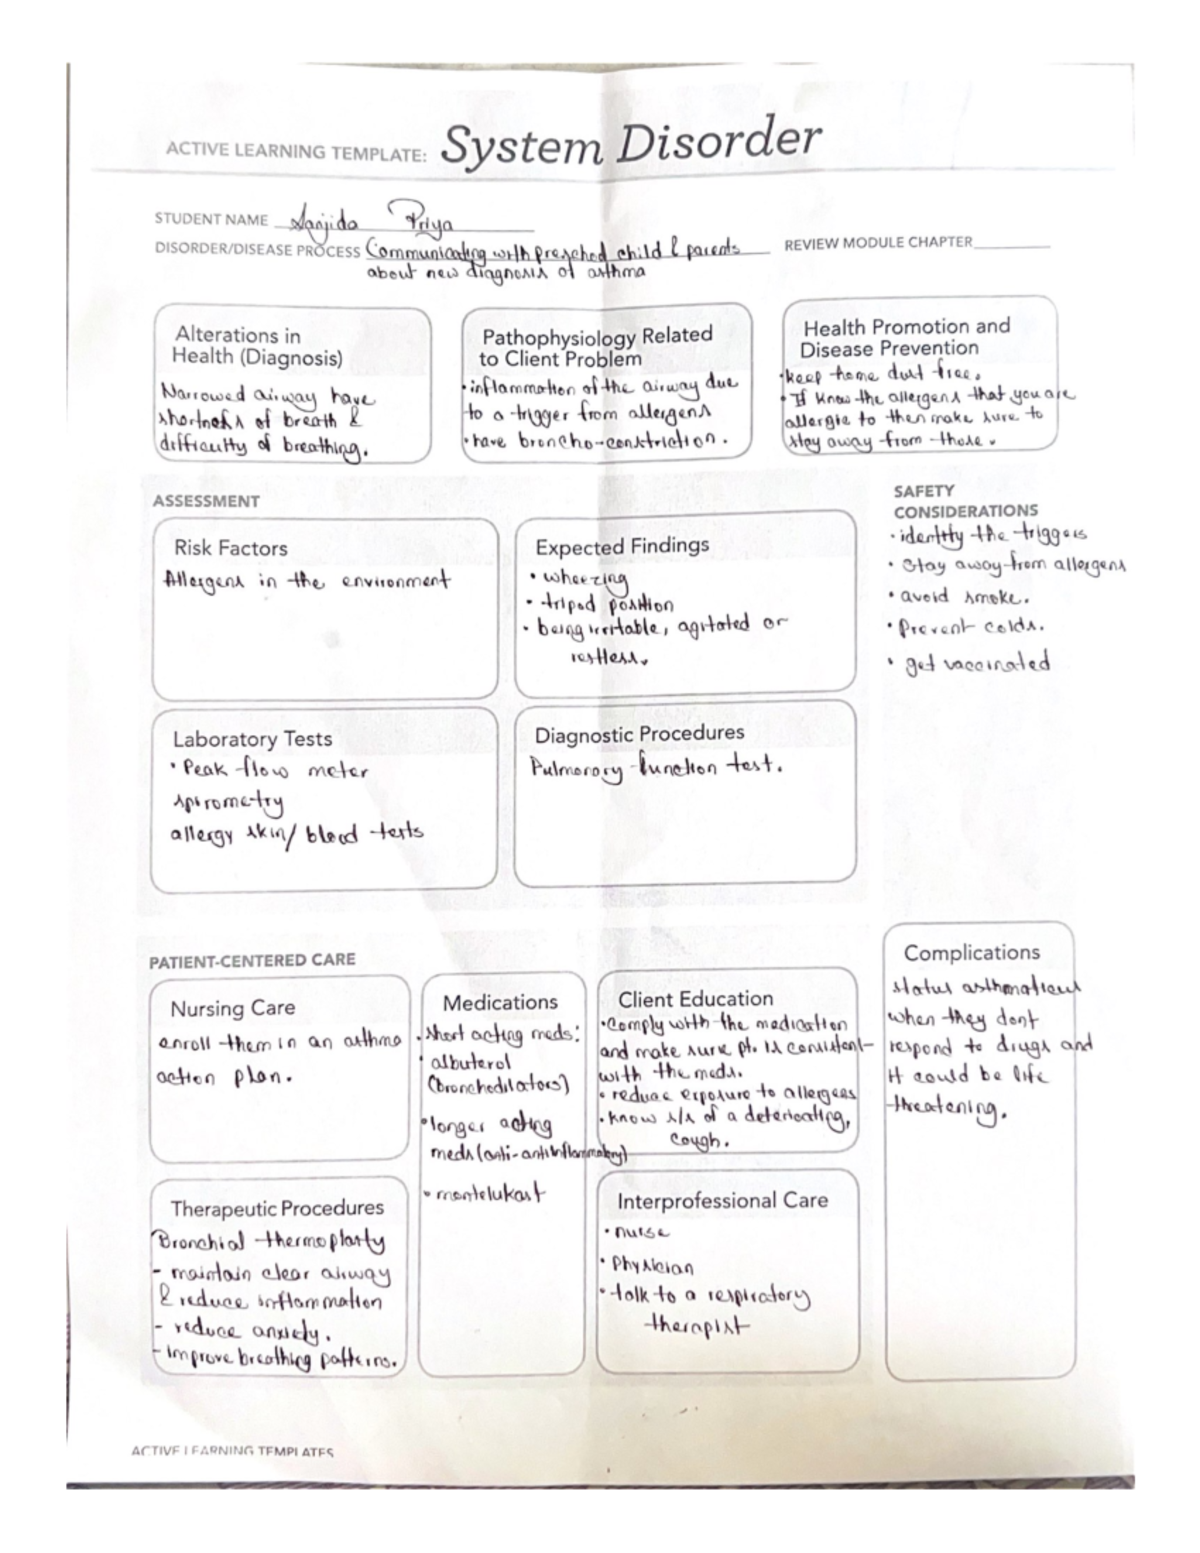 ACTIVE LEARNING TEMPLATE: System Disorder
STUDENT NAME Sanjida Priya
DISORDER/DISEASE PROCESS Communicating with preschool child & parents
about new diagnosis of asthma
REVIEW MODULE CHAPTER
Alterations in
Health (Diagnosis)
Narrowed airway have
shortness of breath &
difficulty of breathing.
Pathophysiology Related
to Client Problem
• inflammation of the airway due
to a trigger from allergens
• have broncho-constriction.
Health Promotion and
Disease Prevention
• keep home dust free.
• If know the allergens that you are
allergic to then make sure to
stay away from those.
ASSESSMENT
Risk Factors
Allergens in the environment
Expected Findings
• wheezing
• tripod position
• being irritable, agitated or
restless.
SAFETY
CONSIDERATIONS
• identity the triggers
• Stay away from allergens
• avoid smoke.
• Prevent colds.
• get vaccinated
Laboratory Tests
• Peak flow meter
spirometry
allergy skin/ blood tests
Diagnostic Procedures
Pulmonary function test.
PATIENT-CENTERED CARE
Nursing Care
enroll them in an asthma
action plan.
Medications
• Short acting meds:
• albuterol
(bronchodilators)
• longer acting
meds (anti-antiinflammatory)
• montelukast
Client Education
• Comply with the medication
and make sure pt. is consistent
with the meds.
• reduce exposure to allergees
• know s/s of a deterioating,
cough.
Complications
status asthmaticus
when they dont
respond to drugs and
it could be life
threatening.
Therapeutic Procedures
Bronchial thermoplasty
- maintain clear airway
& reduce inflammation
- reduce anxiety.
- improve breathing patterns.
Interprofessional Care
• nurse
• Physician
• talk to a respiratory
therapist
ACTIVE LEARNING TEMPLATES